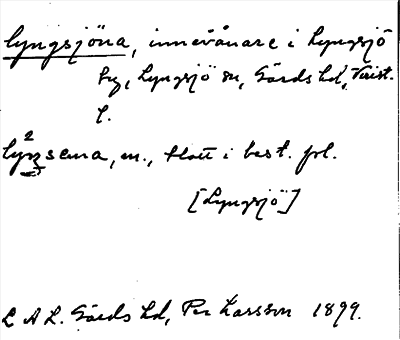 lyngsjöna, innevånare i Lyngsjö
by, Lyngsjö sn, Gärds hd, Krist.
l.
lyŋsena, m., blott i best. pl.
[Lyngsjö]
L A L. Gärds hd, Per Larsson 1899.